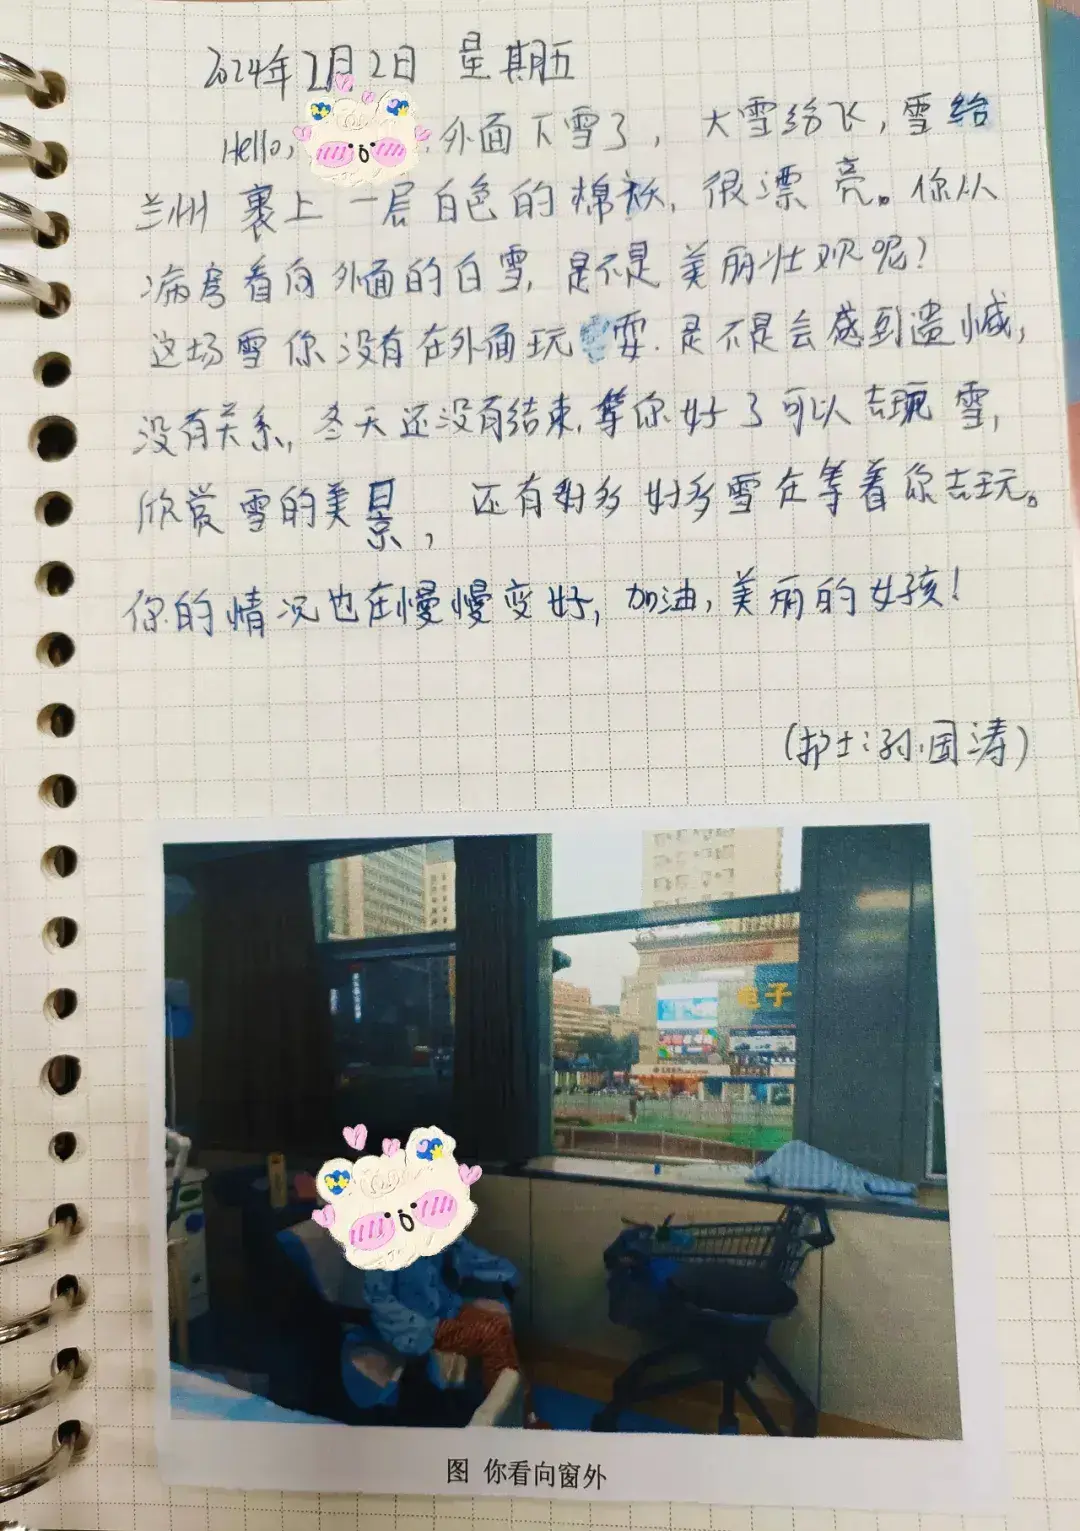 2024年2月2日 星期五
Hello, 外面下雪了，大雪给飞，雪给
兰州裹上一层白色的棉袄，很漂亮。你从
病房看向外面的白雪，是不是美丽壮观呢？
这场雪你没有在外面玩耍．是不是会感到遗憾，
没有关系，冬天还没有结束，等你好了可以去玩雪，
欣赏雪的美景，还有好多好多雪在等着你去玩。
你的情况也在慢慢变好，加油，美丽的女孩！
(护士：孙国涛)
电子
图 你看向窗外